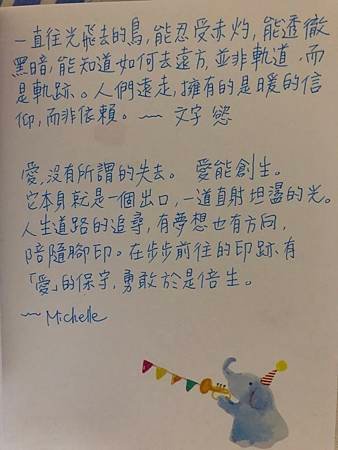 一直往光飛去的鳥,能忍受赤灼,能透徹
黑暗,能知道如何去遠方,並非軌道,而
是軌跡。人們遠走,擁有的是暖的信
仰,而非依賴。~ 文字 慾
愛,沒有所謂的失去。 愛能創生。
它本身就是一個出口,一道直射坦盪的光。
人生道路的追尋,有夢想也有方向,
陪隨腳印。在步步前往的印跡,有
「愛」的保守,勇敢於是倍生。
~ Michelle